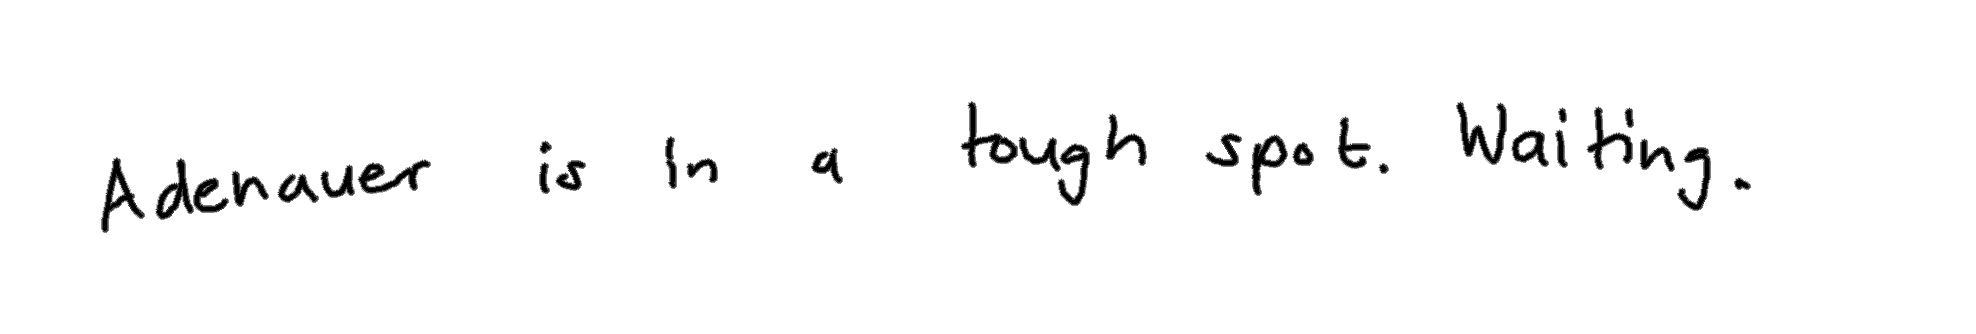 Adenauer is in a tough spot. Waiting.